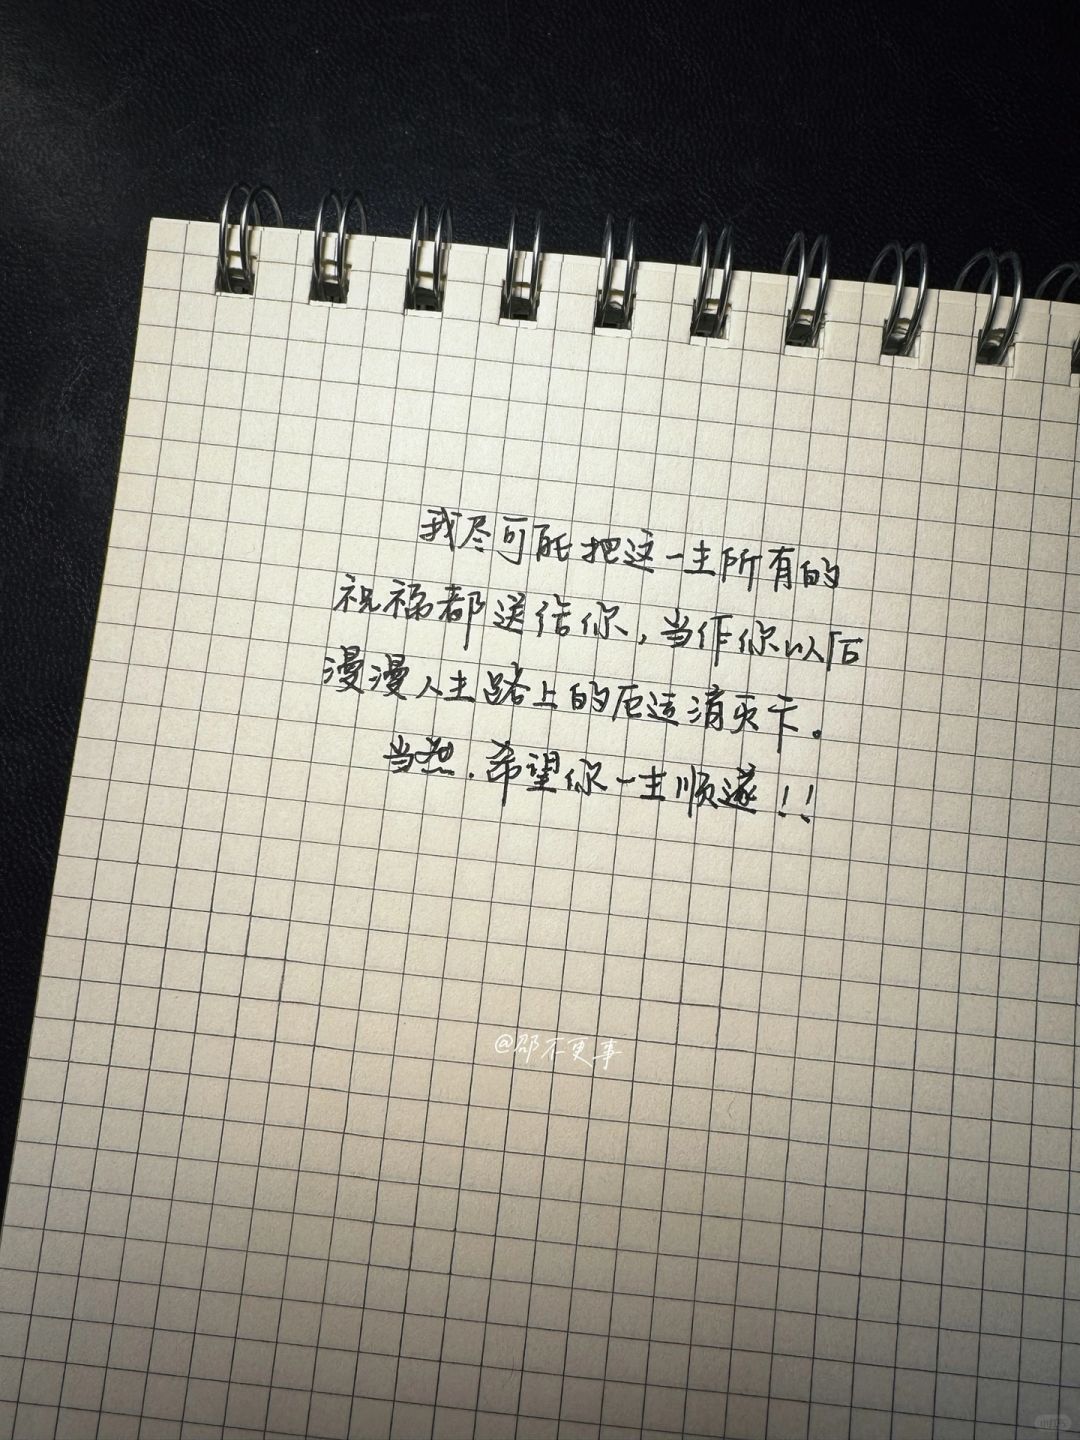 我尽可能把这一生所有的
祝福都送给你,当作你以后
漫漫人生路上的厄运消灭卡。
当然.希望你一生顺遂!!
@邵不更事